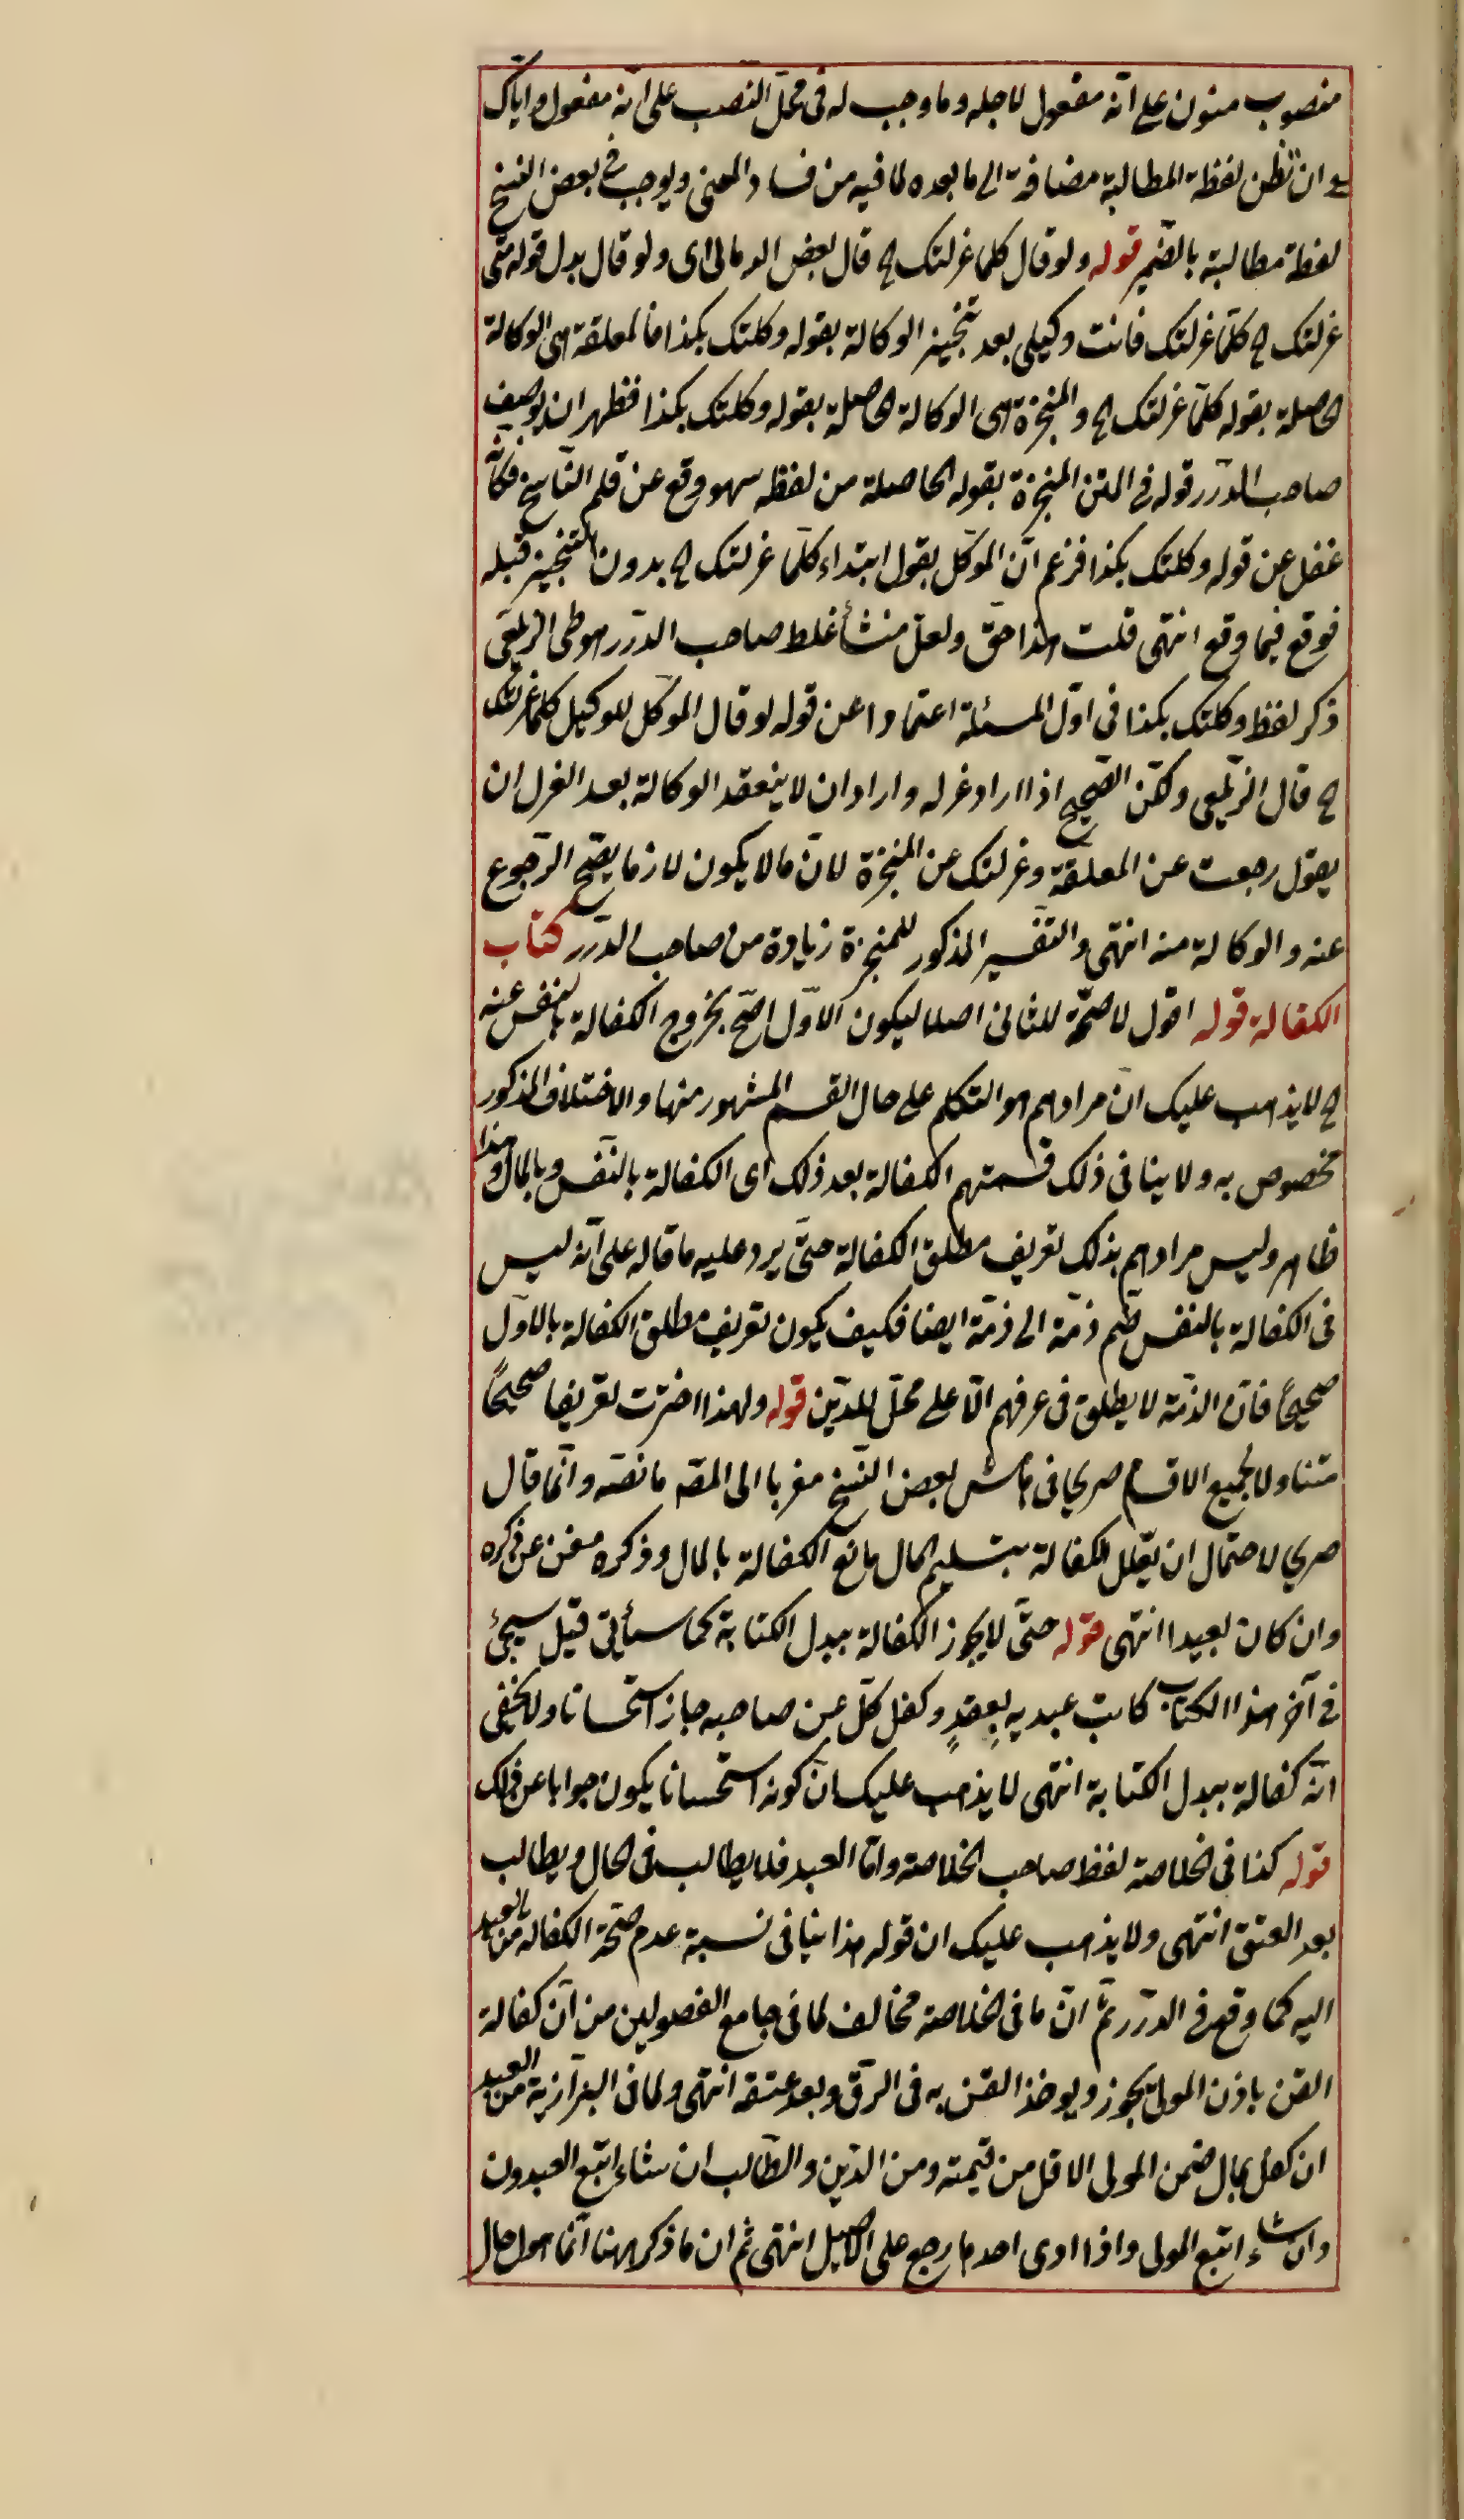 منصوب منون على انّه مفعول لاجله وما وجب له فى محلّ النصب على انّه مفعول واياك
وان تظن لفظة المطالبة مضافة الى ما بعده لما فيه من فساد المعنى ويوجب فى بعض النسخ
لفظة مطالبته بالضمير قوله ولو قال كلما عزلتك الح قال بعض الموالى اى ولو قال بدل قوله متى
عزلتك الح كلّما عزلتك فانت وكيلى بعد تنجيز الوكالة بقوله وكلتك بكذا فالمعلقة هى الوكالة
الحاصلة بقوله كلّما عزلتك الح والمنجزة هى الوكالة الحاصلة بقوله وكلتك بكذا فظهر ان توصيف
صاحب الدّرر قوله فى المتن المنجزة بقوله الحاصلة من لفظه سهو وقع عن قلم النّاسخ فكانّه
غفل عن قوله وكلتك بكذا فزعم انّ الموكّل يقول ابتداء كلّما عزلتك الح بدون التنجيز قبله
فوقع فيما وقع انتهى قلت هذا حقّ ولعلّ منشأ غلط صاحب الدّرر هو طى الزيلعى
ذكر لفظ وكلتك بكذا فى اوّل المسئلة اعتمادا عن قوله لو قال الموكّل للوكيل كلما عزلتك
الح قال الزّيلعى ولكن الصّحيح اذا اراد عزله واراد ان لا ينعقد الوكالة بعد العزل ان
يقول رجعت عن المعلقة وعزلتك عن المنجزة لانّ ما لا يكون لازما يصّح الرّجوع
عنه والوكالة منه انتهى والتفسير المذكور للمنجزة زيادة من صاحب الدّرر كتاب
الكفالة قوله اقول لا صحّة للثانى اصلا ليكون الاوّل اصّح بخروج الكفالة بالنفس عنه
الح لا يذهب عليك انّ مرادهم هو التكلم على حال القسم المشهور منها والاختلاف المذكور
مخصوص به ولا ينافى ذلك قسمتهم الكفالة بعد ذلك اى الكفالة بالنّفس وبالمال وهذا
ظاهر وليس مرادهم بذلك تعريف مطلق الكفالة حتّى يرد عليه ما قاله على انّه ليس
فى الكفالة بالنفس ضّم ذمّة الى ذمّة ايضا فكيف يكون تعريف مطلق الكفالة بالاوّل
صحيحًا فانّ الذمّة لا يطلق فى عرفهم الّا على محلّ للدّين قوله ولهذا اخترت تعريفا صحيحًا
متناولا لجميع الاقسام صريحا فى هامش بعض النّسخ معزيا الى المصّ ما نصّه وانّما قال
صريحا لاحتمال ان يعلل الكفالة بتسليم المال مانع الكفالة بالمال وذكره مغن عن ذكره
وان كان بعيدا انتهى قوله حتّى لا يجوز الكفالة ببدل الكتابة كما سيأتى قيل سيجئ
فى آخر هذا الكتاب كاتب عبديه بعقدٍ وكفل كلّ عن صاحبه جاز استحسانا ولا يخفى
انّه كفالة ببدل الكتابة انتهى لا يذهب عليك انّ كونه استحسانا يكون جوابا عن ذلك
قوله كذا فى الخلاصة لفظ صاحب الخلاصة وامّا العبد فلا يطالب فى الحال ويطالب
بعد العتق انتهى ولا يذهب عليك ان قوله هذا ينافى نسبة عدم صحّة الكفالة من العبد
اليه كما وقع فى الدّرر ثمّ انّ ما فى الخلاصة مخالف لما فى جامع الفصولين من انّ كفالة
القن باذن المولى يجوز ويوخذ القن به فى الرّق وبعد عتقه انتهى ولما فى البزّازية من العبد
ان كفل بمال ضمن المولى الاقل من قيمته ومن الدّين والطّالب ان شاء اتبع العبد ون
وان شاء اتبع المولى واذا ادى احدهما رجع على الاصيل انتهى ثم ان ما ذكر ههنا انما هو ل حال